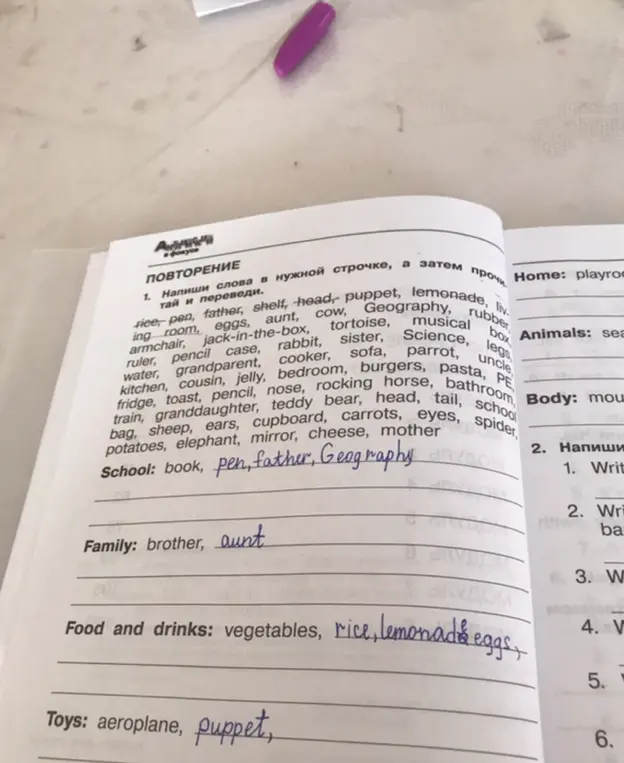 Английский
в фокусе
ПОВТОРЕНИЕ
1. Напиши слова в нужной строчке, а затем прочи-
тай и переведи.
rice, pen, father, shelf, head, puppet, lemonade, liv-
ing room, eggs, aunt, cow, Geography, rubber,
armchair, jack-in-the-box, tortoise, musical box,
ruler, pencil case, rabbit, sister, Science, legs,
water, grandparent, cooker, sofa, parrot, uncle,
kitchen, cousin, jelly, bedroom, burgers, pasta, PE,
fridge, toast, pencil, nose, rocking horse, bathroom,
train, granddaughter, teddy bear, head, tail, school
bag, sheep, ears, cupboard, carrots, eyes, spider,
potatoes, elephant, mirror, cheese, mother
School: book, pen, father, Geography
Family: brother, aunt
Food and drinks: vegetables, rice, lemonade eggs,
Toys: aeroplane, puppet,
Home: playroo
Animals: sea
Body: mou
2. Напиши
1. Writ
2. Wri
ba
3. W
4. V
5.
6.